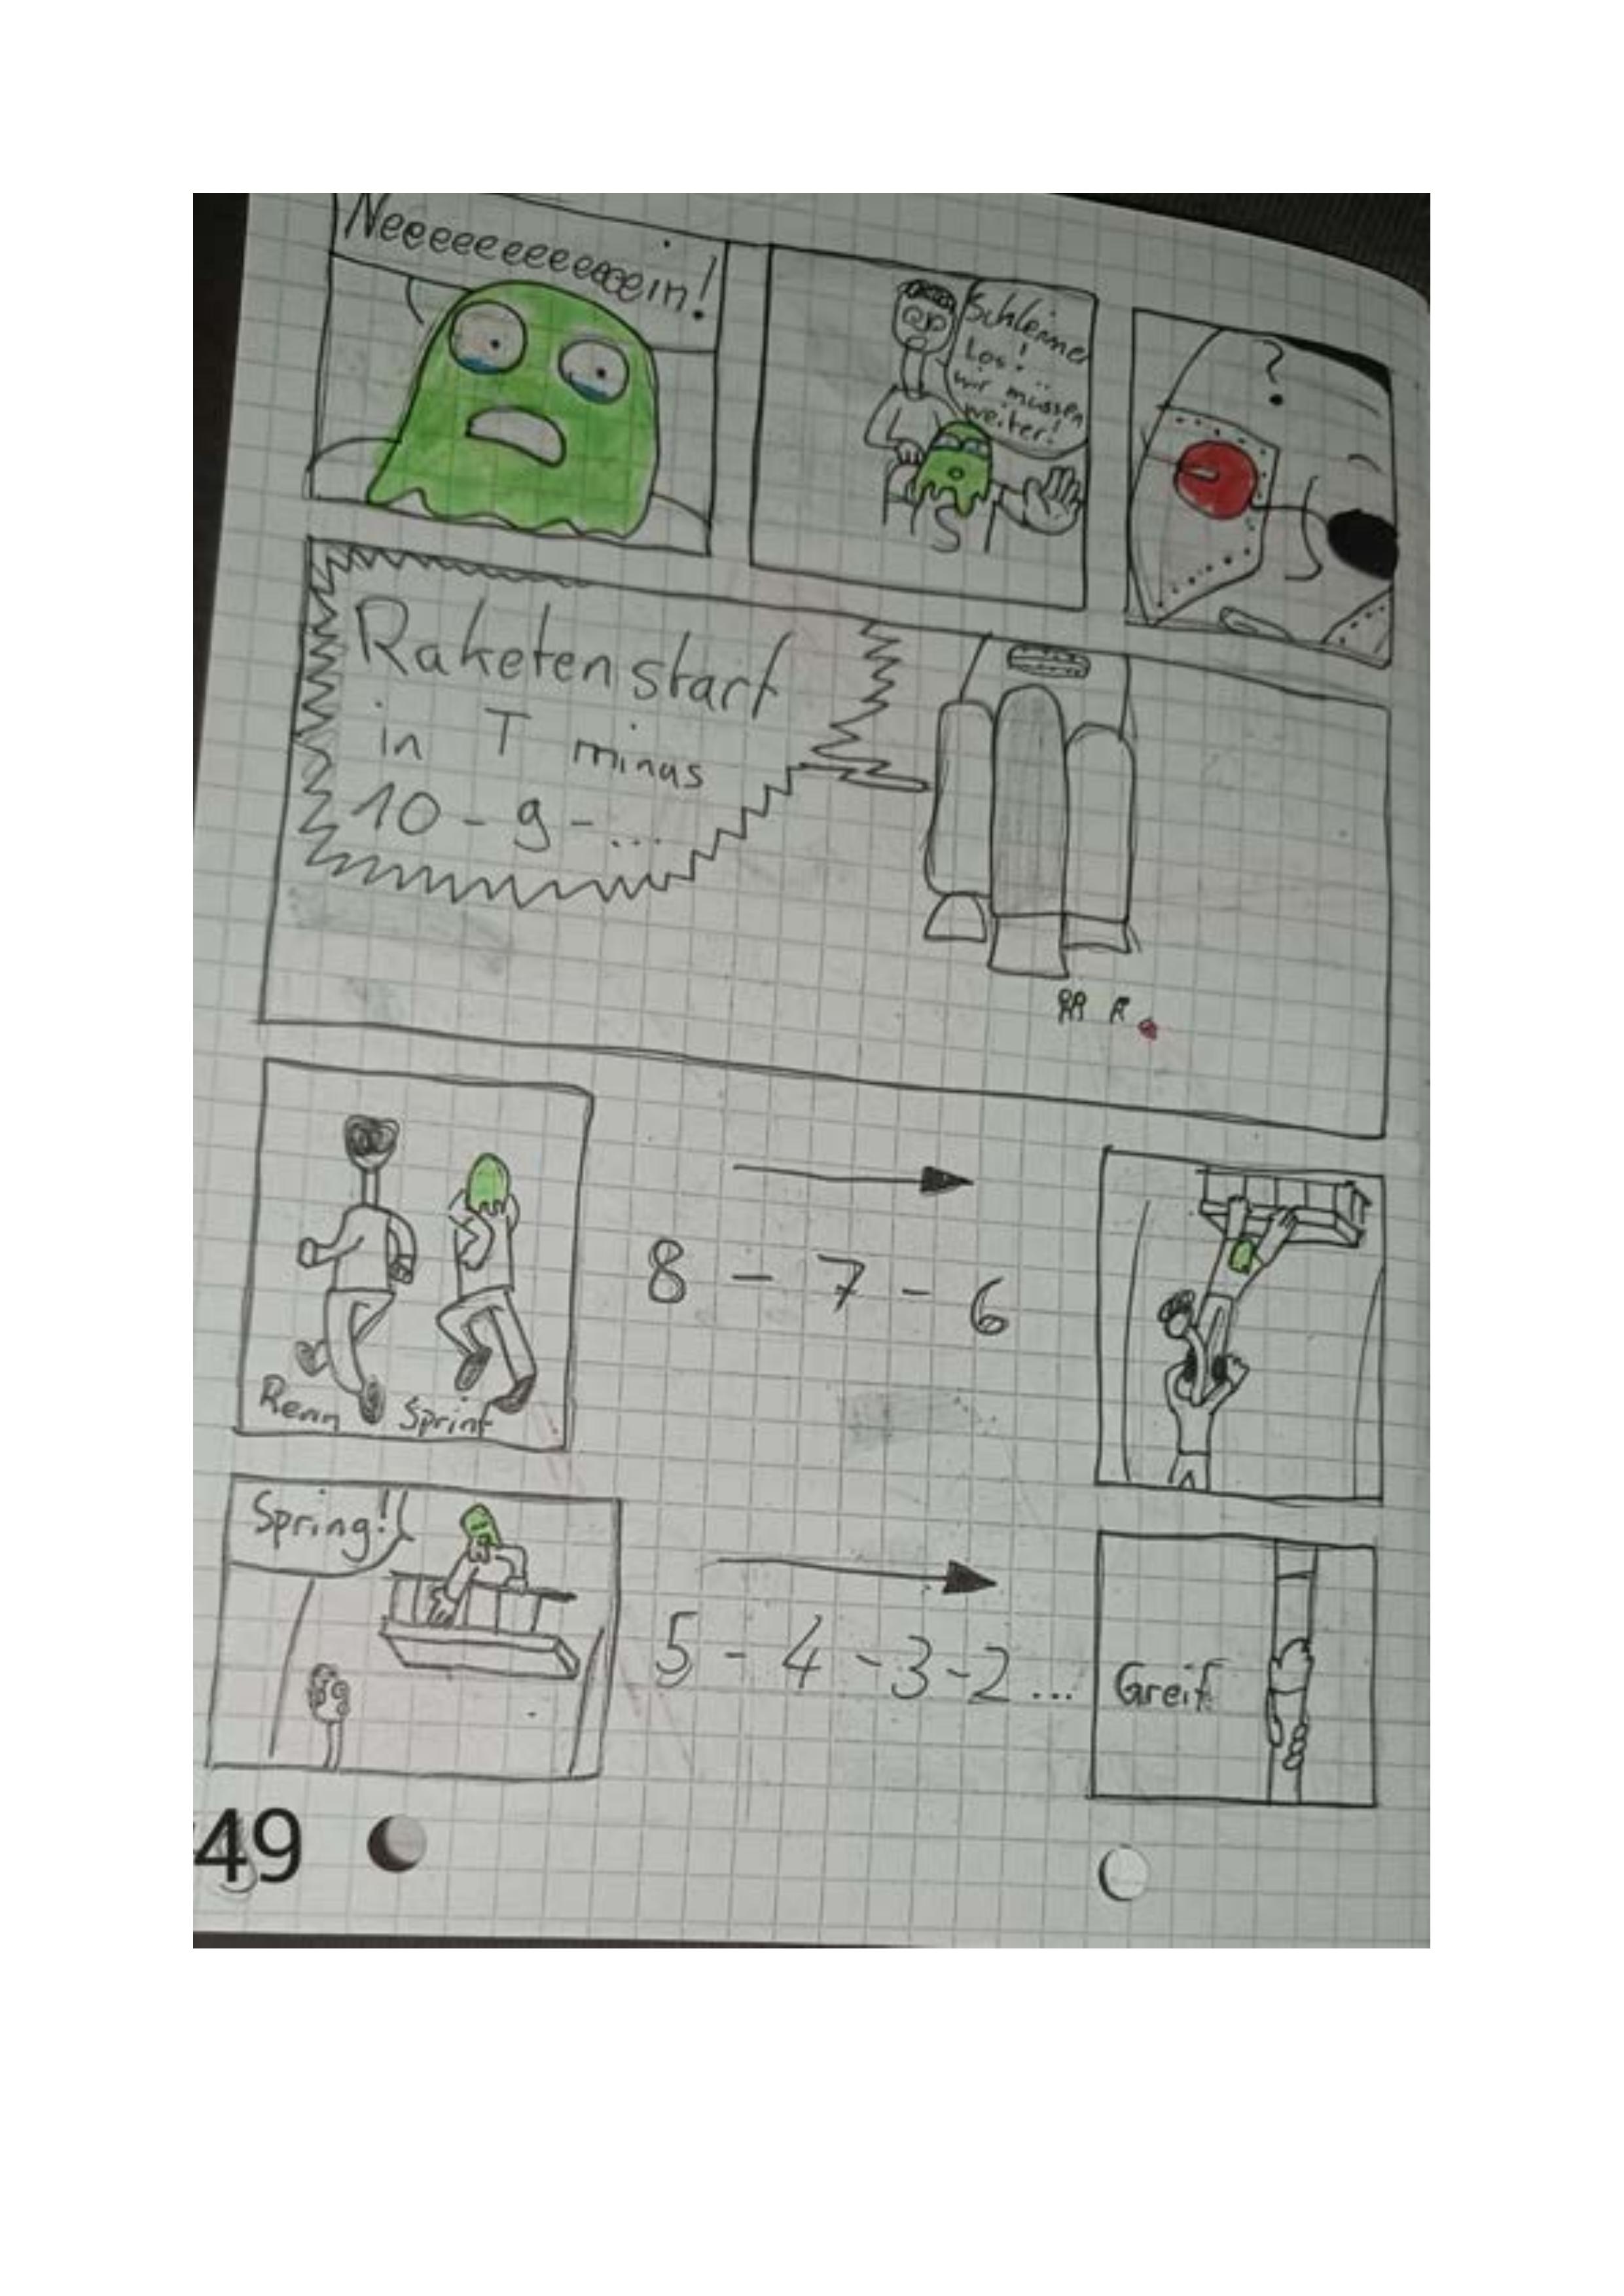 Neeeeeeeeeeeein!
Schleimer
!
Los!
wir müssen
weiter!
?
S
Raketenstart
in T minus
10 - 9 - ...
8 - 7 - 6
Renn Sprint
Spring!
5 - 4 - 3 - 2 ...
Greif
49